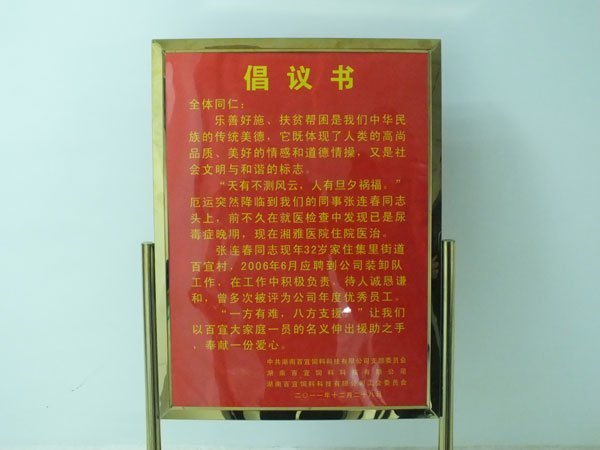 倡议书
全体同仁：
乐善好施、扶贫帮困是我们中华民
族的传统美德，它既体现了人类的高尚
品质、美好的情感和道德情操，又是社
会文明与和谐的标志。
“天有不测风云，人有旦夕祸福。”
厄运突然降临到我们的同事张连春同志
头上，前不久在就医检查中发现已是尿
毒症晚期，现在湘雅医院住院医治。
张连春同志现年32岁家住集里街道
百宜村，2006年6月应聘到公司装卸队
工作，在工作中积极负责，待人诚恳谦
和，曾多次被评为公司年度优秀员工。
“一方有难，八方支援。”让我们
以百宜大家庭一员的名义伸出援助之手
，奉献一份爱心。
中共湖南百宜饲料科技有限公司支部委员会
湖南百宜饲料科技有限公司
湖南百宜饲料科技有限公司工会委员会
二〇一一年十二月二十八日